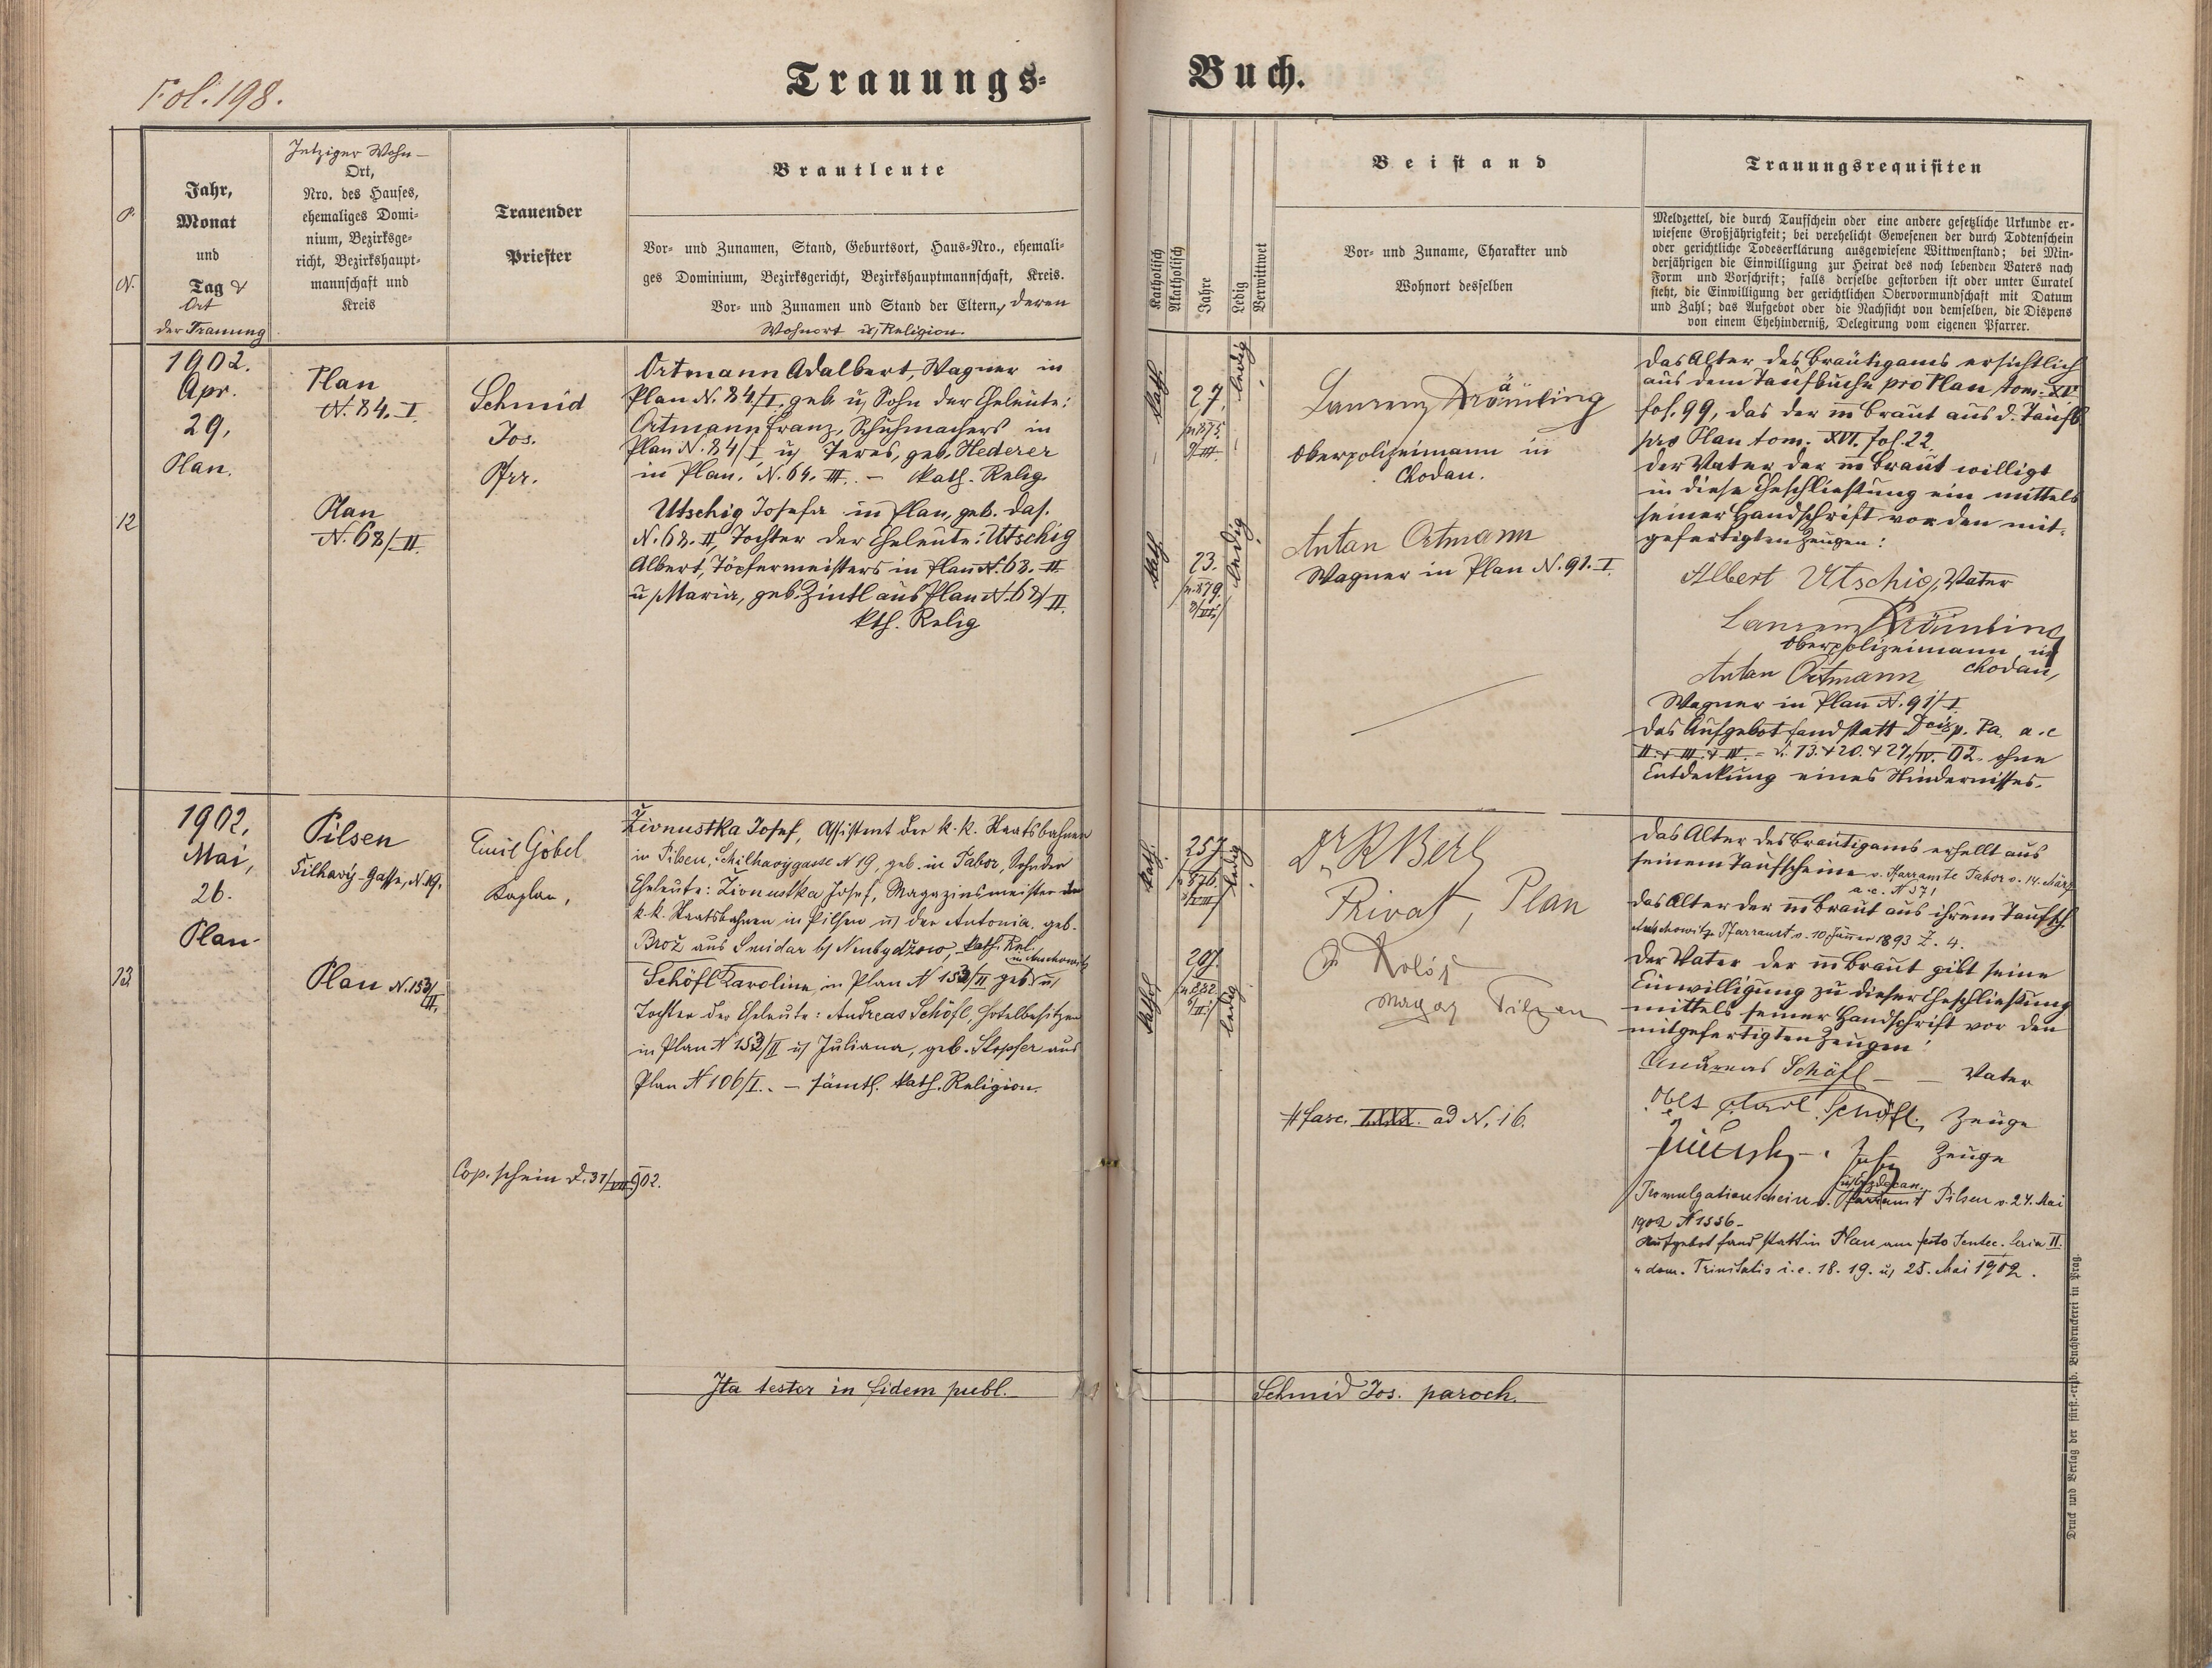 Fol. 198.
Trauungs-
Buch.
P.
N.
Jahr,
Monat
und
Tag &
Ort
der Trauung
Jetziger Wohn-
Ort,
Nro. des Hauses,
ehemaliges Domi-
nium, Bezirksge-
richt, Bezirkshaupt-
mannschaft und
Kreis
Trauender
Priester
Brautleute
Vor- und Zunamen, Stand, Geburtsort, Haus-Nro., ehemali-
ges Dominium, Bezirksgericht, Bezirkshauptmannschaft, Kreis.
Vor- und Zunamen und Stand der Eltern, deren
Wohnort u. Religion.
Katholisch
Akatholisch
Jahre
Ledig
Verwittwet
Beistand
Vor- und Zuname, Charakter und
Wohnort desselben
Trauungsrequisiten
Meldzettel, die durch Taufschein oder eine andere gesetzliche Urkunde er-
wiesene Großjährigkeit; bei verehelicht Gewesenen der durch Todtenschein
oder gerichtliche Todeserklärung ausgewiesene Wittwenstand; bei Min-
derjährigen die Einwilligung zur Heirat des noch lebenden Vaters nach
Form und Vorschrift; falls derselbe gestorben ist oder unter Curatel
steht, die Einwilligung der gerichtlichen Obervormundschaft mit Datum
und Zahl; das Aufgebot oder die Nachsicht von demselben, die Dispens
von einem Ehehinderniß, Delegirung vom eigenen Pfarrer.
12
1902.
Apr.
29.
Plan.
Plan
N. 84. I
Plan
N. 68/II.
Schmid
Jos.
Pfr.
Ortmann Adalbert, Wagner in
Plan N. 84/I. geb. u. Sohn der Eheleute:
Ortmann Franz, Schuhmachers in
Plan N. 84/I u. Teres, geb. Hederer
in Plan. N. 64. III. - kath. Relig.
Utschig Josefa in Plan, geb. das.
N. 68. II, Tochter der Eheleute: Utschig
Albert, Töpfermeisters in Plan N. 68. II
u. Maria, geb. Zintl aus Plan N. 68/II
kth. Relig
kath.
27,
ledig
kath.
23.
ledig
Laurenz
Oberpolizeimann in
Chodau.
Anton Ortmann
Wagner in Plan N. 91. I.
das Alter des Bräutigams ersichtlich
aus dem Taufbuche pro Plan tom. XV
fol. 99, das der m Braut aus d. Taufb.
pro Plan tom. XVI. fol. 22.
der Vater der m Braut willigt
in diese Eheschließung ein mittels
seiner Handschrift vor den mit-
gefertigten Zeugen:
Albert Utschig, Vater
Laurenz
Oberpolizeimann in
Chodau,
Anton Ortmann
Wagner in Plan N. 91/I.
das Aufgebot fand statt Dom. p. Pa. a. c
II. & III. & IV. = d. 13. & 20. & 27./IV. 02. ohne
Entdeckung eines Hindernisses.
13
1902,
Mai,
26.
Plan
Pilsen
Gasse, N. 19.
Plan N. 153/II.
Emil Göbel
Kaplan,
Živnustka Josef, Assistent der k. k. Staatsbahnen
in Pilsen, Schilhavýgasse N 19, geb. in Tabor, Sohn der
Eheleute: Živnustka Josef, Magazinsmeister der
k. k. Staatsbahnen in Pilsen u. der Antonia, geb.
Brož aus Smidar b/ Neubydžow, kath. Rel.
Schöfl Karolina, in Plan N 153/II geb. u.
Tochter der Eheleute: Andreas Schöfl, Hotelbesitzer
in Plan N 153/II u. Juliana, geb. Stopfer aus
Plan N 106/I. - sämtl. kath. Religion.
Cop. schein d. 31/VII 902.
kath.
ledig
kathol.
ledig
Dr R Berl
Privat, Plan
Pilzen
# fasc. LXXX. ad N. 16.
das Alter des Bräutigams erhellt aus
seinem Taufscheine v. Pfarramte Tabor v. 14. März
a. c. N 371
das Alter der m Braut aus ihrem Taufsch.
Pfarramt v. 10. Jänner 1893 Z. 4.
der Vater der m Braut gibt seine
Einwilligung zu dieser Eheschließung
mittels seiner Handschrift vor den
mitgefertigten Zeugen:
Andreas Schöfl - - Vater
Karl Schöfl, Zeuge
Zeuge
Promulgationsschein v. Pfarramt Pilsen v. 24. Mai
1902 N 1556-
Aufgebot fand statt in Plan am festo Pentec. feria II.
u dom. Trinitatis i. e. 18. 19. u. 25. Mai 1902.
Ita testor in fidem publ.
Schmid Jos. paroch.
Druck und Verlag der fürst.-erzb. Buchdruckerei in Prag.